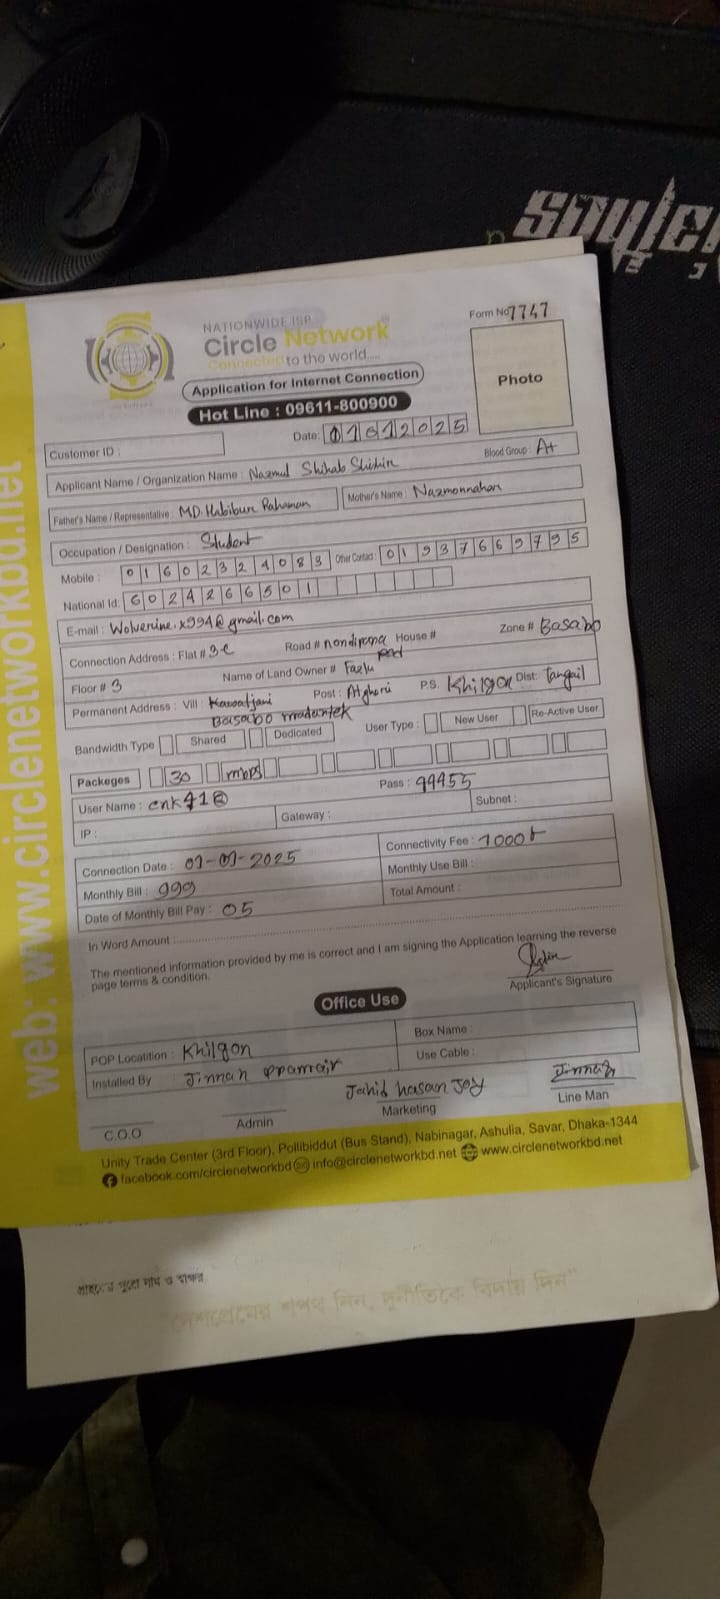 NATIONWIDE ISP
Circle Network
Connected to the world....
Application for Internet Connection
Hot Line : 09611-800900
Form No 7747
Photo
Customer ID :
Date: 01012025
Applicant Name / Organization Name : Nazmul Shihab Shihin
Blood Group : A+
Father's Name / Representative : MD. Habibur Rahaman
Mother's Name : Nazmonnahar
Occupation / Designation : Student
Mobile : 01602324083 Other Contact : 01937669795
National Id: 6024266501
E-mail : Wolverine.x994@gmail.com
Connection Address : Flat # 3-C Road # nondipara House # Zone # Basabo
Floor # 3 Name of Land Owner # Fazlu
Permanent Address : Vill : Post : Atghori P.S. Khilgon Dist: Tangail
Basabo madartek
Bandwidth Type Shared Dedicated User Type : New User Re-Active User
Packeges 30 mbps
User Name : Pass : 99455
IP : Gateway : Subnet :
Connection Date : 01-01-2025 Connectivity Fee : 1000
Monthly Bill : 999 Monthly Use Bill :
Date of Monthly Bill Pay : 05 Total Amount :
In Word Amount :
The mentioned information provided by me is correct and I am signing the Application learning the reverse
page terms & condition.
Applicant's Signature
Office Use
POP Locatition : Khilgon Box Name :
Installed By Jinnah Use Cable :
Jahid hasan Joy Jinnah
C.O.O Admin Marketing Line Man
Unity Trade Center (3rd Floor), Pollibiddut (Bus Stand), Nabinagar, Ashulia, Savar, Dhaka-1344
facebook.com/circlenetworkbd info@circlenetworkbd.net www.circlenetworkbd.net
web: www.circlenetworkbd.net
"দেশপ্রেমের শপথ নিন, দুর্নীতিকে বিদায় দিন"